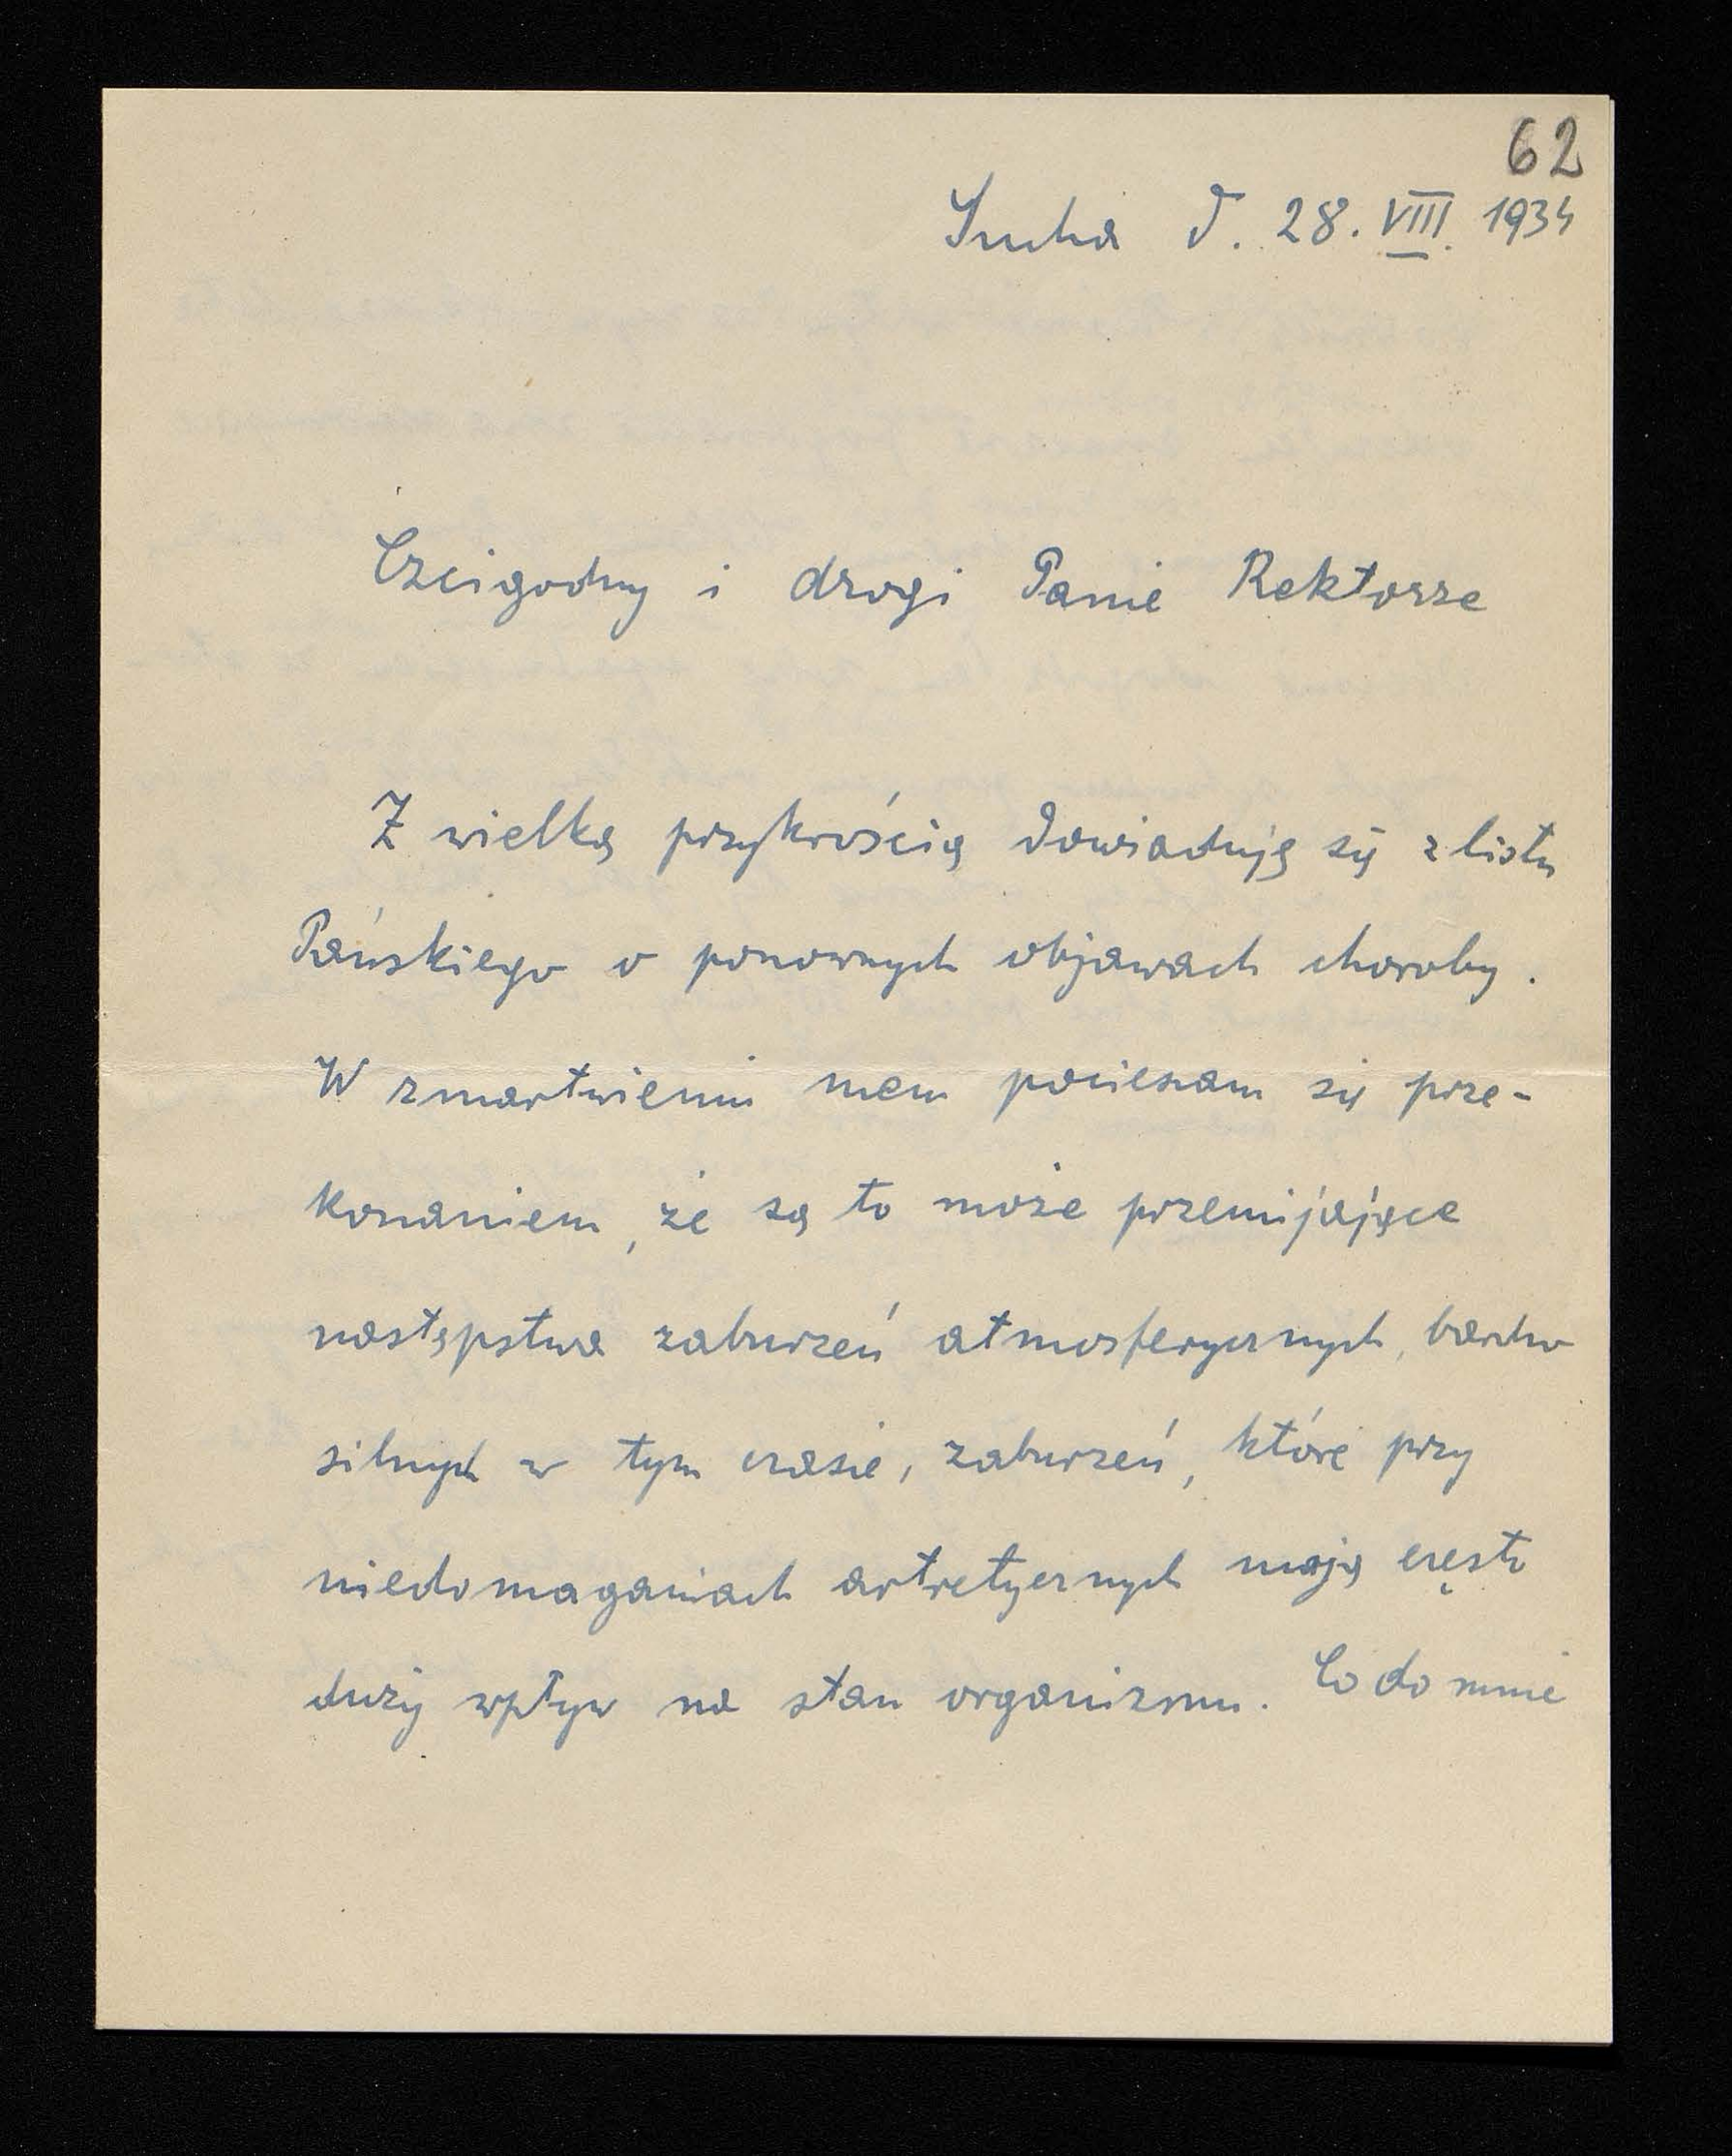 62
Sucha d. 28. VIII. 1934
Czcigodny i drogi Panie Rektorze
Z wielką przykrością dowiaduję się z listu
Pańskiego o ponownych objawach choroby.
W zmartwieniu mem pocieszam się prze-
konaniem, że są to może przemijające
następstwa zaburzeń atmosferycznych, bardzo
silnych w tym czasie, zaburzeń, które przy
niedomaganiach artretycznych mają często
duży wpływ na stan organizmu. Co do mnie